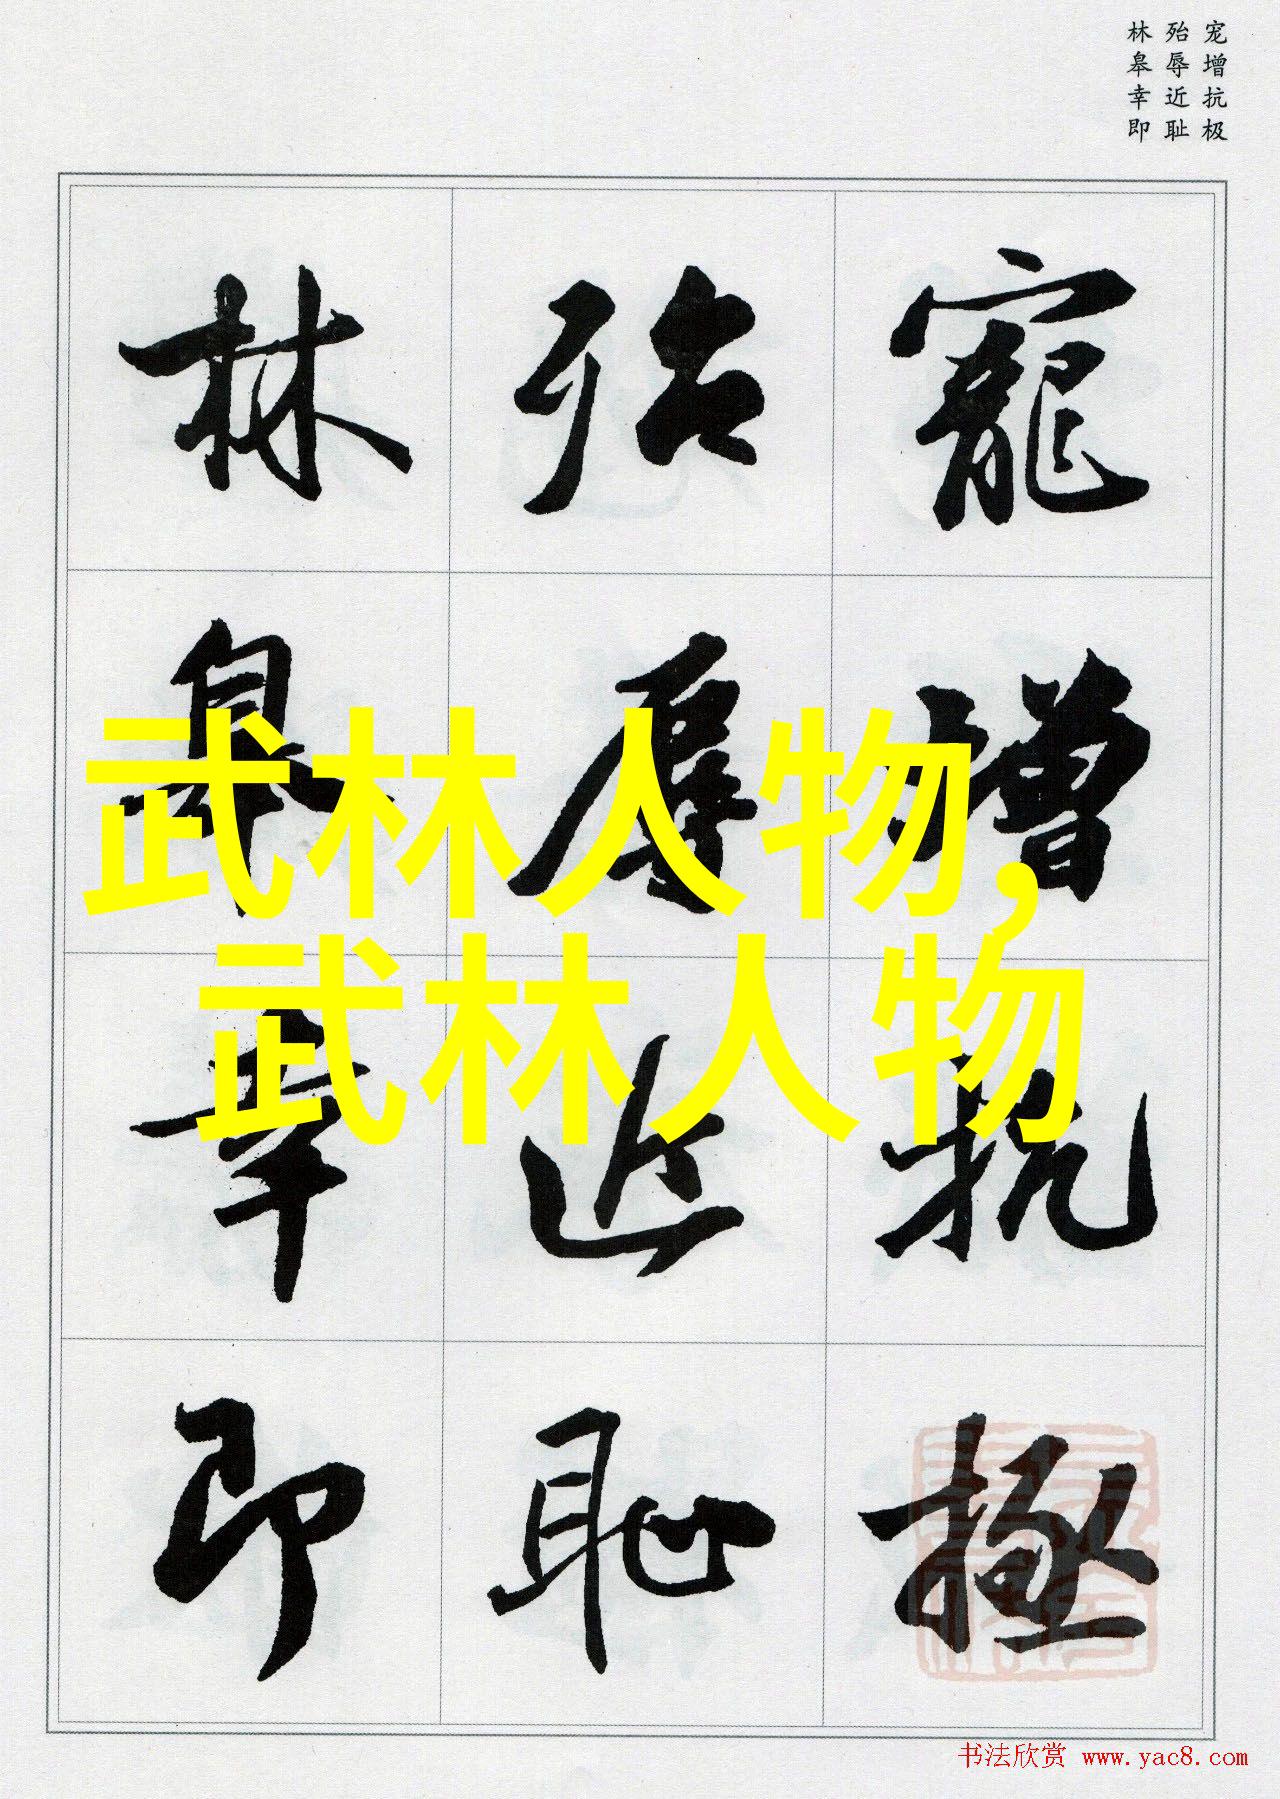 宠增抗极
殆辱近耻
林皋幸即
寵增抗極
殆辱近恥
林皋幸即
武林人物,
武林人物
书法欣赏 www.yac8.com